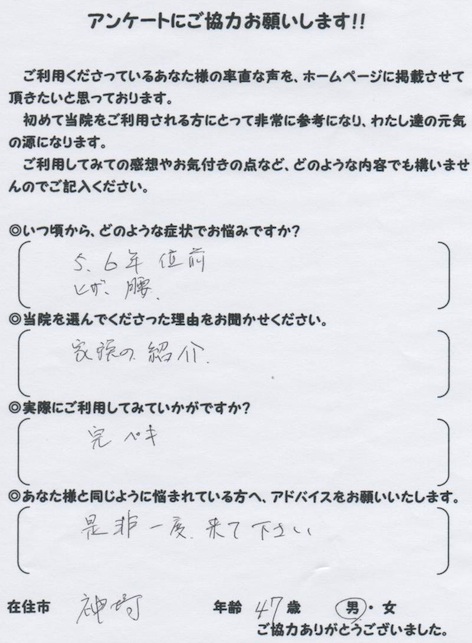 アンケートにご協力お願いします!!
ご利用くださっているあなた様の率直な声を、ホームページに掲載させて
頂きたいと思っております。
初めて当院をご利用される方にとって非常に参考になり、わたし達の元気
の源になります。
ご利用してみての感想やお気付きの点など、どのような内容でも構いませ
んのでご記入ください。
◎いつ頃から、どのような症状でお悩みですか?
5、6年位前
腰、
◎当院を選んでくださった理由をお聞かせください。
家族の紹介
◎実際にご利用してみていかがですか?
完ペキ
◎あなた様と同じように悩まれている方へ、アドバイスをお願いいたします。
是非一度、来て下さい
在住市 神埼 年齢 47歳 男・女
ご協力ありがとうございました。